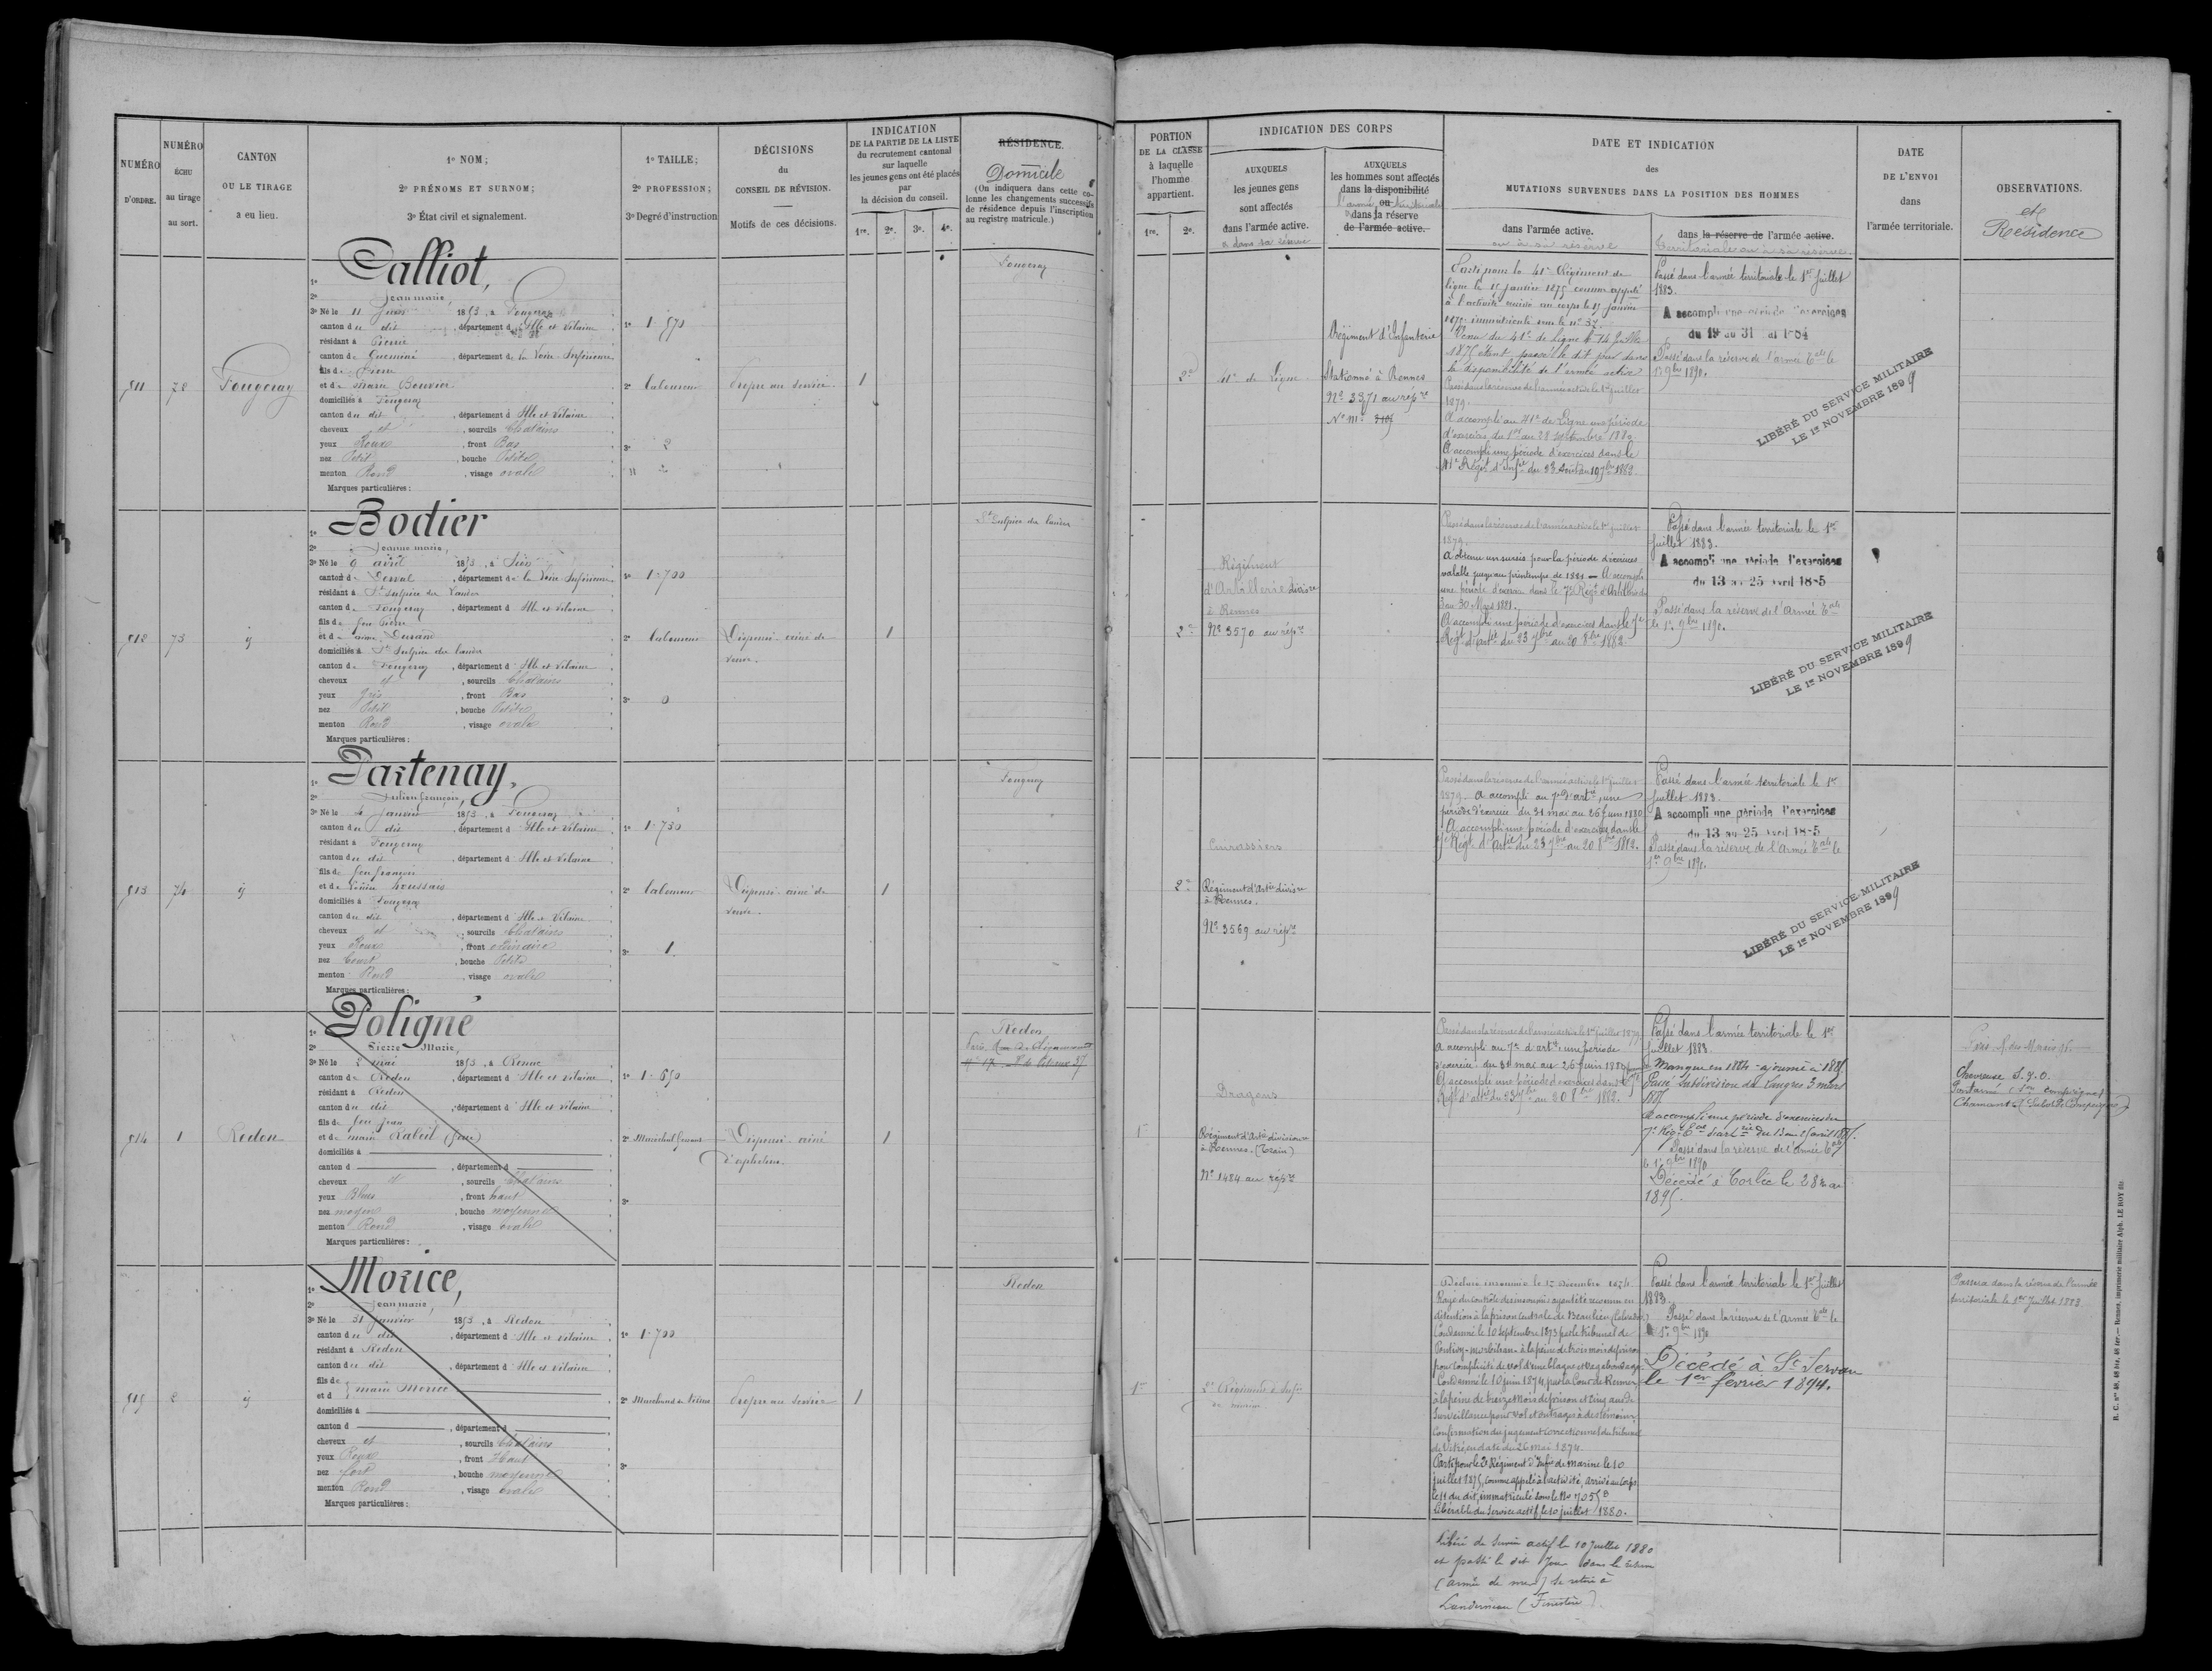 NUMÉRO
D'ORDRE.
NUMÉRO
ÉCHU
au tirage
au sort.
CANTON
OU LE TIRAGE
a eu lieu.
1º NOM;
2º PRÉNOMS ET SURNOM;
3º État civil et signalement.
1º TAILLE;
2º PROFESSION;
3º Degré d'instruction
DÉCISIONS
du
CONSEIL DE RÉVISION.
Motifs de ces décisions.
INDICATION
DE LA PARTIE DE LA LISTE
du recrutement cantonal
sur laquelle
les jeunes gens ont été placés
par
la décision du conseil.
1re. 2e. 3e. 4e.
RÉSIDENCE.
Domicile
(On indiquera dans cette co-
lonne les changements successifs
de résidence depuis l'inscription
au registre matricule.)
PORTION
DE LA CLASSE
à laquelle
l'homme
appartient.
1re. 2e.
INDICATION DES CORPS
AUXQUELS
les jeunes gens
sont affectés
dans l'armée active.
AUXQUELS
les hommes sont affectés
dans la disponibilité
ou
dans la réserve
de l'armée active.
DATE ET INDICATION
des
MUTATIONS SURVENUES DANS LA POSITION DES HOMMES
dans l'armée active.
ou dans sa réserve
dans la réserve de l'armée active.
territoriale ou dans sa réserve.
DATE
DE L'ENVOI
dans
l'armée territoriale.
OBSERVATIONS.
et
Résidence
811
72
Fougeray
Calliot,
Jean marie
3º Né le 11 Juin 1853, à Fougeray
canton du dit, département d'Ille et Vilaine
résidant à Pierric
canton de Guéméné, département de la Loire-Inférieure
fils de Pierre
et de marie Bouvier
domiciliés à Fougeray
canton du dit, département d'Ille et Vilaine
cheveux et, sourcils Chatains
yeux Roux, front Bas
nez Petit, bouche Petite
menton Rond, visage ovale
Marques particulières :
2º laboureur
3º 2
Propre au service
1
Fougeray
2e
41e de Ligne
Régiment d'Infanterie
Stationné à Rennes
Nº 3371 au rép re
Parti pour le 41e Régiment de
ligne le 15 Janvier 1875 comme appelé
Venu du 41e de ligne le 14 Juillet
1875 étant passé le dit jour dans
la disponibilité de l'armée active
Passé dans la réserve de l'armée active le 1er juillet
1879.
A accompli au 41e de Ligne une période
d'exercices du 1er au 28 septembre 1880
A accompli une période d'exercices dans le
41e Régt d'Infie du 23 Août au 19 7bre 1882.
Passé dans l'armée territoriale le 1er Juillet
1883.
A accompli une période d'exercices
du 19 au 31
Passé dans la réserve de l'armée Tale le
1er 9bre 1890.
LIBÉRÉ DU SERVICE MILITAIRE
LE 1er NOVEMBRE 1899
812
73
Bodier
Jeanne marie,
3º Né le 9 avril 1853, à Sion
canton de Derval, département de la Loire Inférieure
résidant à St Sulpice des landes
canton de Fougeray, département d'Ille et Vilaine
fils de feu Pierre
domiciliés à St Sulpice des landes
canton de Fougeray, département d'Ille et Vilaine
cheveux et, sourcils Chatains
yeux gris, front Bas
nez Petit, bouche Petite
menton Rond, visage ovale
Marques particulières :
1º 1.700
2º laboureur
3º 0
Dispensé aîné de
veuve.
1
St Sulpice des landes
2e
Régiment
d'Artillerie divisre
à Rennes
Nº 3570 au rép re
Passé dans la réserve de l'armée active le 1er juillet
1879.
A obtenu un sursis pour la période d'exercices
valable jusqu'au printemps de 1881 — A accompli
une période d'exercices dans le 7e Régt d'Artillerie du
3 au 30 Mars 1881.
A accompli une période d'exercices dans le 7e
Régt d'artie du 23 7bre au 20 8bre 1882
Passé dans l'armée territoriale le 1er
Juillet 1883.
A accompli une période d'exercices
du 13 au 25 avril 1885
Passé dans la réserve de l'Armée Tale
le 1er 9bre 1890.
LIBÉRÉ DU SERVICE MILITAIRE
LE 1er NOVEMBRE 1899
813
74
Partenay,
Julien françois,
3º Né le Janvier 1853, à Fougeray
canton du dit, département d'Ille et Vilaine
résidant à Fougeray
canton du dit, département d'Ille et Vilaine
fils de feu françois
domiciliés à Fougeray
canton du dit, département d'Ille et Vilaine
cheveux et, sourcils Chatains
yeux Roux, front ordinaire
nez Court, bouche Petite
menton Rond, visage ovale
Marques particulières :
1º 1.730
2º laboureur
3º 1.
Dispensé aîné de
veuve.
1
Fougeray
2e
Cuirassiers
Régiment d'Artie divisre
à Rennes.
Nº 3569 au rép re
Passé dans la réserve de l'armée active le 1er Juillet
1879. A accompli au 7e d'artie, une
période d'exercices du 31 mai au 26 Juin 1880
A accompli une période d'exercices dans le
7e Régt d'artie du 23 7bre au 20 8bre 1882.
Passé dans l'armée territoriale le 1er
Juillet 1883.
A accompli une période d'exercices
du 13 au 25 avril 1885
Passé dans la réserve de l'Armée Tale le
1er 9bre 1890.
LIBÉRÉ DU SERVICE MILITAIRE
LE 1er NOVEMBRE 1899
814
1
Redon
Poligné
Pierre Marie,
3º Né le 2 mai 1853, à Renac
canton de Redon, département d'Ille et Vilaine
résidant à Redon
canton du dit, département d'Ille et Vilaine
fils de feu Jean
domiciliés à
canton d, département d
cheveux et, sourcils Chatains
yeux Bleus, front haut
nez moyen, bouche moyenne
menton Rond, visage ovale
Marques particulières :
1º 1.650
2º Maréchal ferrant
3º
Dispensé aîné
d'orphelins.
1
Redon
1re
Dragons
Régiment d'Artie divisionre
à Rennes. (Train)
Nº 1484 au rép re
Passé dans la réserve de l'armée active le 1er Juillet 1879.
A accompli au 7e d'artie une période
d'exercices du 31 mai au 26 Juin 1880
A accompli une période d'exercices dans le 7e
Régt d'artie du 23 7bre au 20 8bre 1882.
Passé dans l'armée territoriale le 1er
Juillet 1883.
Manqué en 1884 - ajourné à 1885
Passé Subdivision de Langres 3 mars
1885
A accompli une période d'exercices du
7e Régt Tal d'artie du 13 au 25 avril 1885.
Passé dans la réserve de l'armée Tale
le 1er 9bre 1890
Décédé à Corbie le 28 mai
1895.
Chevreuse S. & O.
815
2
Morice,
Jean marie,
3º Né le 31 Janvier 1853, à Redon
canton du dit, département d'Ille et Vilaine
résidant à Redon
canton du dit, département d'Ille et Vilaine
fils de
et d marie Morice
domiciliés à
canton d, département d
cheveux et, sourcils Chatains
yeux Roux, front Haut
nez fort, bouche moyenne
menton Rond, visage ovale
Marques particulières :
1º 1.700
3º
Propre au service
1
Redon
1re
2e Régiment d'Infie
de marine
Déclaré insoumis le 17 Décembre 1874
Rayé du contrôle des insoumis ayant été reconnu en
détention à la prison Centrale de Beaulieu (Calvados)
Condamné le 10 Septembre 1873 par le tribunal de
Pontivy - Morbihan - à la peine de trois mois de prison
pour complicité de vol d'une blague et vagabondage.
Condamné le 10 Juin 1874 par la Cour de Rennes,
à la peine de treize Mois de prison et Cinq ans de
surveillance pour vol et outrages à des témoins
Confirmation du jugement correctionnel du tribunal
de Vitré, en date du 26 mai 1874.
Parti pour le 2e Régiment d'Infie de marine le 10
juillet 1875, comme appelé à l'activité, arrivé au Corps
le 11 du dit, immatriculé sous le No 7055
Libérable du Service actif le 10 juillet 1880.
Libéré du Service actif le 10 Juillet 1880
et passé le dit Jour dans la réserve
(armée de mer) se retire à
Landerneau (Finistère).
Passé dans l'armée territoriale le 1er Juillet
1883.
Passé dans la réserve de l'Armée Tale le
1er 9bre 1890
Décédé à St Servan
le 1er février 1894.
Passera dans la réserve de l'armée
territoriale le 1er Juillet 1883
R. C. nos 46, 48 bis, 48 ter. — Rennes, imprimerie militaire Alph. LE ROY fils